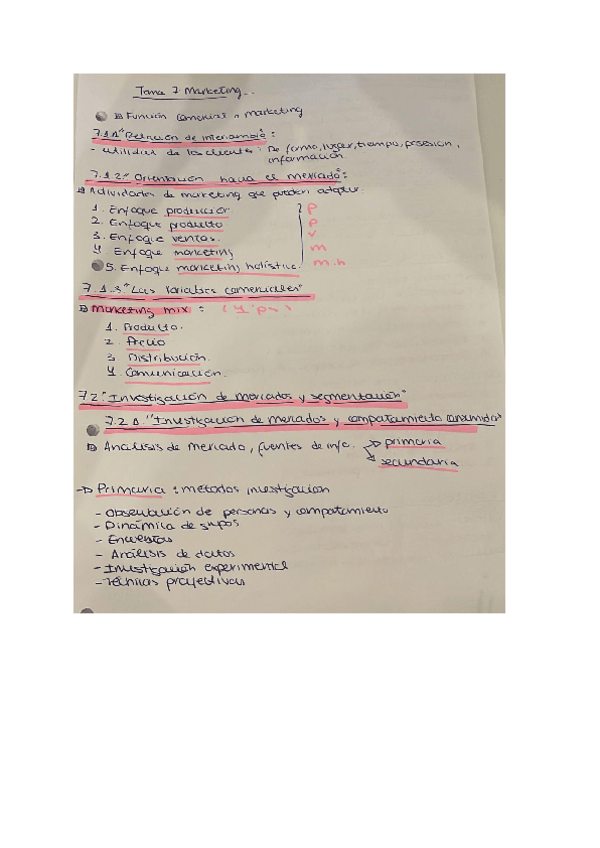 Tema 7 Marketing..
Función comercial o marketing
7.1.1 "Relación de intercambio":
- utilidad de los cliente: De forma, lugar, tiempo, posesión,
información
7.1.2. "Orientación hacia el mercado":
Actividades de marketing que pueden adoptar.
1. Enfoque producción. p
2. Enfoque producto p
3. Enfoque ventas. v
4. Enfoque marketing m
5. Enfoque marketing holístico. m.h
7.1.3. "Las variables comerciales"
Marketing mix : (4 "ps")
1. Producto.
2. Precio
3. Distribución.
4. Comunicación.
7.2. "Investigación de mercados y segmentación"
7.2.1. "Investigación de mercados y comportamiento consumidor"
Análisis de mercado, fuentes de info. → primaria
→ secundaria
→ Primaria : métodos investigacion
- Observación de personas y comportamiento
- Dinámica de grupos
- Encuestas
- Análisis de datos
- Investigación experimental
- Técnicas proyectivas